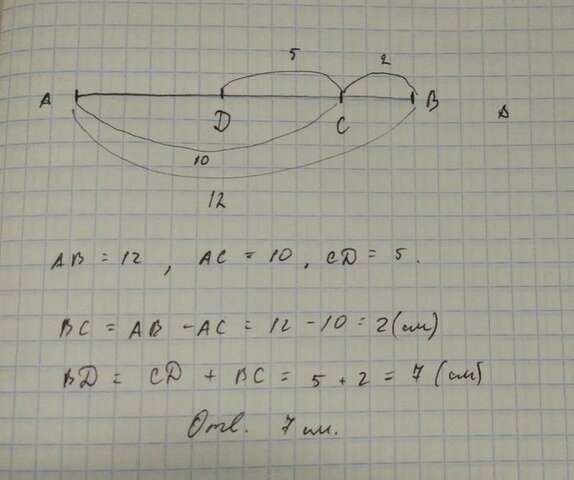 5 2
A D C B D
10
12
AB = 12 , AC = 10 , CD = 5 .
BC = AB - AC = 12 - 10 = 2 (см)
BD = CD + BC = 5 + 2 = 7 (см)
Отв. 7 см.